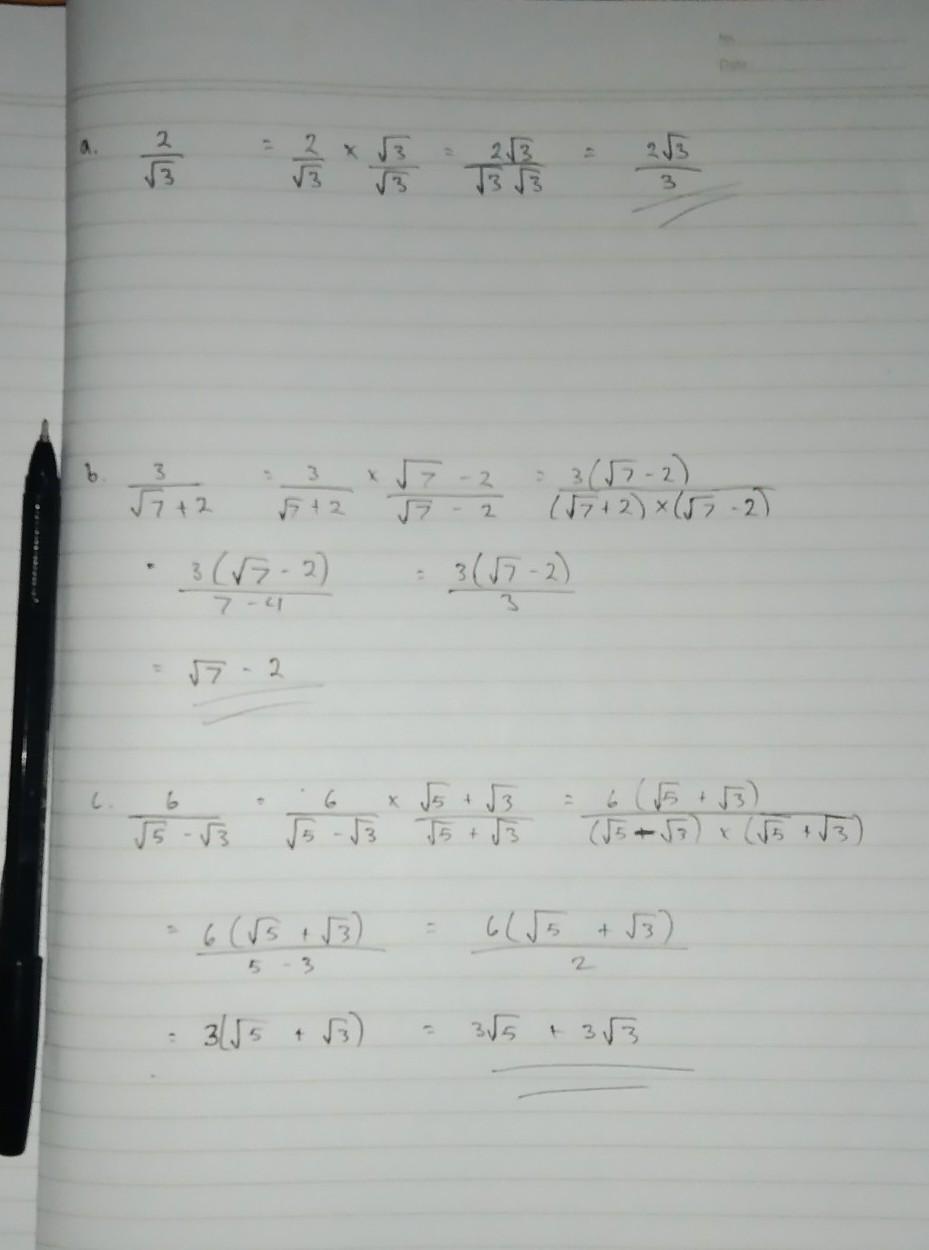 No.
Date
a. 2/√3 = 2/√3 × √3/√3 = 2√3/√3 √3 = 2√3/3
b. 3/√7 + 2 = 3/√7 + 2 × √7 - 2/√7 - 2 = 3(√7 - 2)/(√7 + 2) × (√7 - 2)
= 3(√7 - 2)/7 - 4 = 3(√7 - 2)/3
= √7 - 2
c. 6/√5 - √3 = 6/√5 - √3 × √5 + √3/√5 + √3 = 6(√5 + √3)/(√5 - √3) × (√5 + √3)
= 6(√5 + √3)/5 - 3 = 6(√5 + √3)/2
= 3(√5 + √3) = 3√5 + 3√3